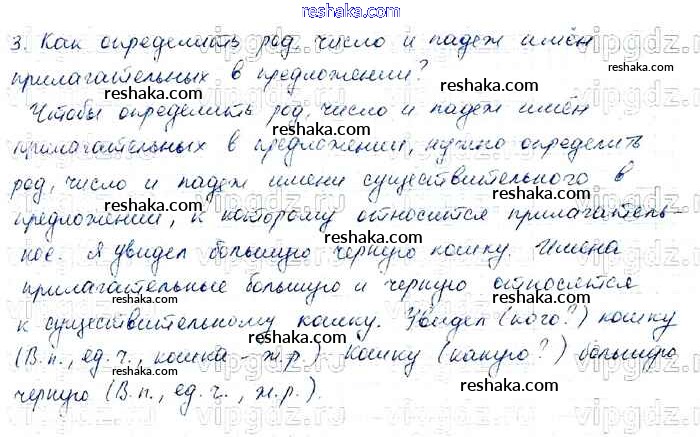 reshaka.com
3. Как определить род, число и падеж имён
прилагательных в предложении?
Чтобы определить род, число и падеж имён
прилагательных в предложении, нужно определить
род, число и падеж имени существительного в
предложении, к которому относится прилагатель-
ное. Я увидел большую черную кошку. Имена
прилагательные большую и черную относятся
к существительному кошку. Увидел (кого?) кошку
(В.п., ед.ч., кошка - ж.р.). Кошку (какую?) большую
черную (В.п., ед.ч., ж.р.).